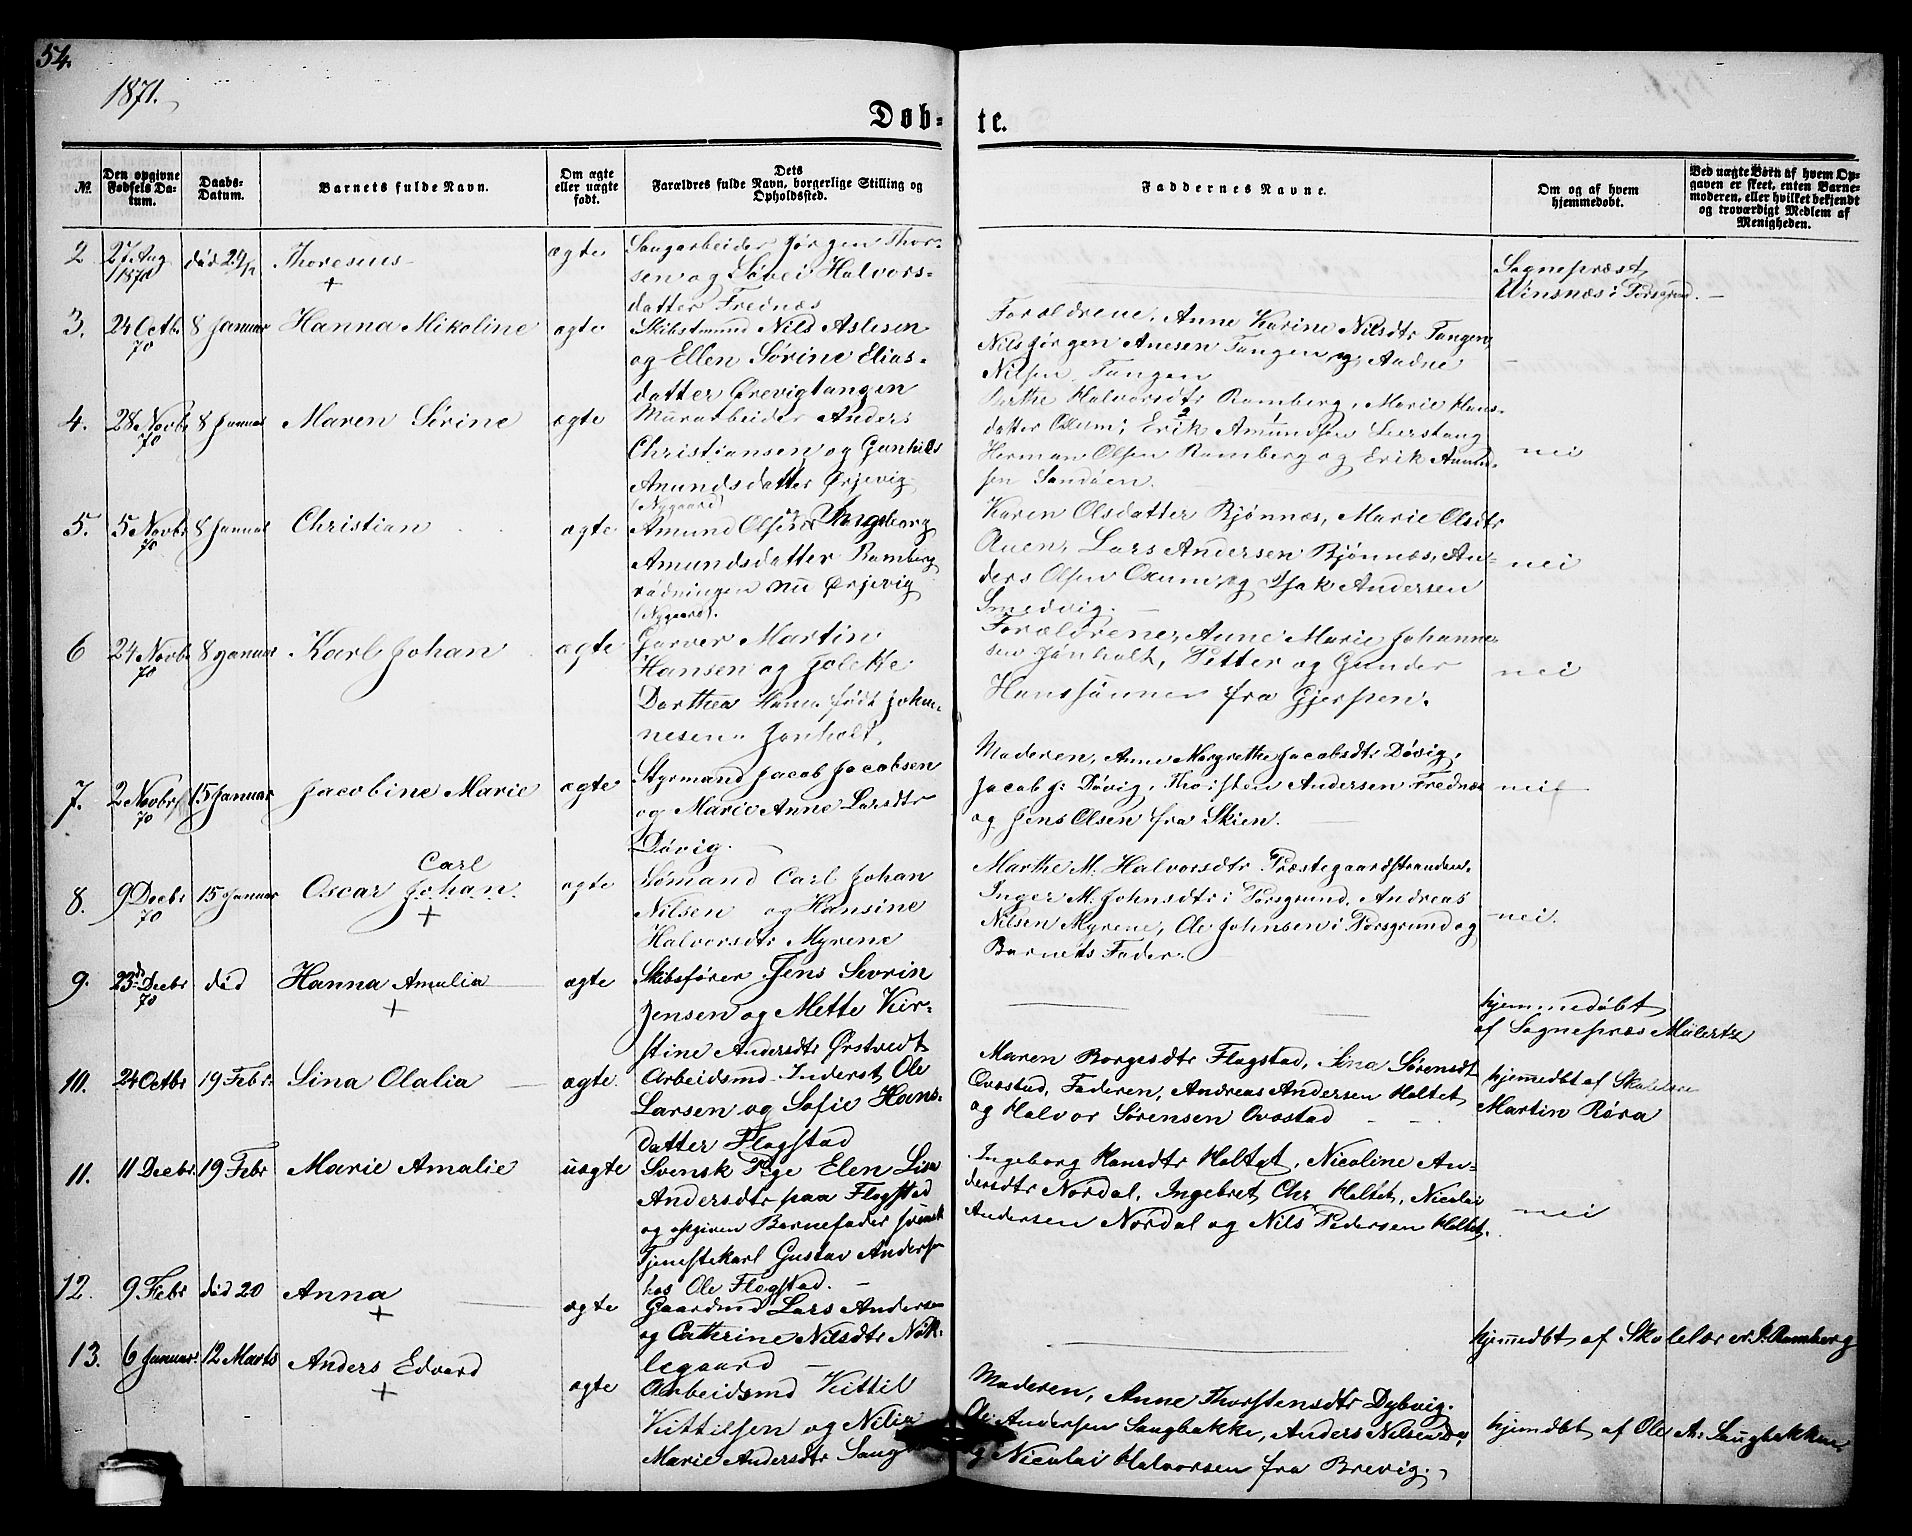 54.
1871.
Døb-
te.
№.
Den opgivne Fødsels Da-tum.
Daabs-Datum.
Barnets fulde Navn.
Om ægte eller uægte født.
Dets Forældres fulde Navn, borgerlige Stilling og Opholdssted.
Faddernes Navne.
Om og af hvem hjemmedøbt.
Ved uægte Børn af hvem Op-gaven er skeet, enten Barne-moderen, eller hvilket bekjendt og troværdigt Medlem af Menigheden.
2 27 Aug 1870 død 29/1 Thoresius + ægte
Saugarbeider Jørgen Thor-
sen og Halvors-
datter Frednæs
Sognepræst
Winsnæs i Porsgrund. —
3. 24 Octbr 70 8 Januar Hanna Mikoline ægte
Skibstmmd Nils Aslesen
og Ellen Sørine Elias-
datter Ørevigtangen
Forældrene, Anne Karine Nilsdtr Tangen,
Nils Jørgen Anesen Tangen og Andne
Nilsen Tangen
4. 28 Novbr 70 8 Januar Maren Sirine ægte
Murarbeider Anders
Christiansen og Gunhild
Amundsdatter Ørjevig
(Nygaard)
Berthe Halvorsdtr Ramberg, Marie Hans-
datter Oxum, Erik Amundsen
Herman Olsen Ramberg og Erik Amund-
sen Sandøen.
nei
5. 5 Novbr 70 8 Januar Christian ægte
Amund Olsen og Ingeborg
Amundsdatter Ramberg
rødningen nu Ørjevig
(Nygaard).
Karen Olsdatter Bjønnes, Marie Olsdtr
Auen, Lars Andersen Bjønnes, An-
ders Olsen Oxum, og Isak Andersen
Smedvig.
nei
6 24 Novbr 70 8 Januar Karl Johan ægte
Garver Martin
Hansen og Jolette
Dorthea Hansen født Johan-
nesen Jønholt.
Forældrene, Anne Marie Johanne-
sen Jønholt, Petter og Gunder
Hanssønner fra Gjerpen.
nei
7. 2 Novbr 70 15 Januar Jacobine Marie ægte
Styrmand Jacob Jacobsen
og Marie Anne Larsdtr
Døvig.
Moderen, Anne Margrethe Jacobsdtr Døvig,
Jacob J: Døvig, Thorsten Andersen Frednæs
og Jens Olsen fra Skien.
nei
8. 9 Decbr 70 15 Januar Oscar Carl Johan + ægte
Sømand Carl Johan
Nilsen og Hansine
Halvorsdtr Myrene
Marthe M. Halvorsdtr Præstegaardstranden,
Inger M. Johnsdtr i Porsgrund, Andreas
Nilsen Myrene, Ole Johnsen i Porsgrund og
Barnets Fader.
nei.
9. 23de Decbr 70 død Hanna Amalia + ægte
Skibsfører Jens Sevrin
Jensen og Mette Kir-
stine Andersdtr Ørstvedt
hjemmedøbt
af Sognepræs Mülertz
10. 24 Octbr 19 Febr: Lina Olalia ægte.
Arbeidsmd Inderst Ole
Larsen og Sofie Hans-
datter Flogstad
Maren Borgesdtr Flogstad, Lina Sørensdt
Ovøstad, Faderen, Andreas Andersen Holtet
og Halvor Sørensen Ovøstad
hjemmedbt af Skolelære
Martin Røra
11. 11 Decbr 19 Febr Marie Amalie uægte
Svensk Pige Elen Lisa
Andersdtr paa Flogstad
og opgiven Barnefader svensk
Tjenestekarl Gustav Anderse
hos Ole Flogstad.
Ingeborg Hansdtr Holtet, Nicoline An-
dersdtr Nordal, Ingebret Chr Holtet, Nicolai
Andersen Nordal og Nils Pedersen Holtet.
nei
12. 9 Febr død 20 Anna + ægte
Gaardmd Lars Andersen
og Catherine Nilsdtr Nøk-
legaard
hjemmedbt af Skolelærer J. Ramberg
13. 6 Januar 12 Marts Anders Edvard + ægte
Arbeidsmd Kittil
Kittilsen og Nilia
Marie Andersdtr Saugb
Moderen, Anne Thorstensdtr Dybvig.
Ole Andersen Saugbakke, Anders Nilsen
og Nicolai Halvorsen fra Brevig.
hjemdbt af Ole A: Saugbakken